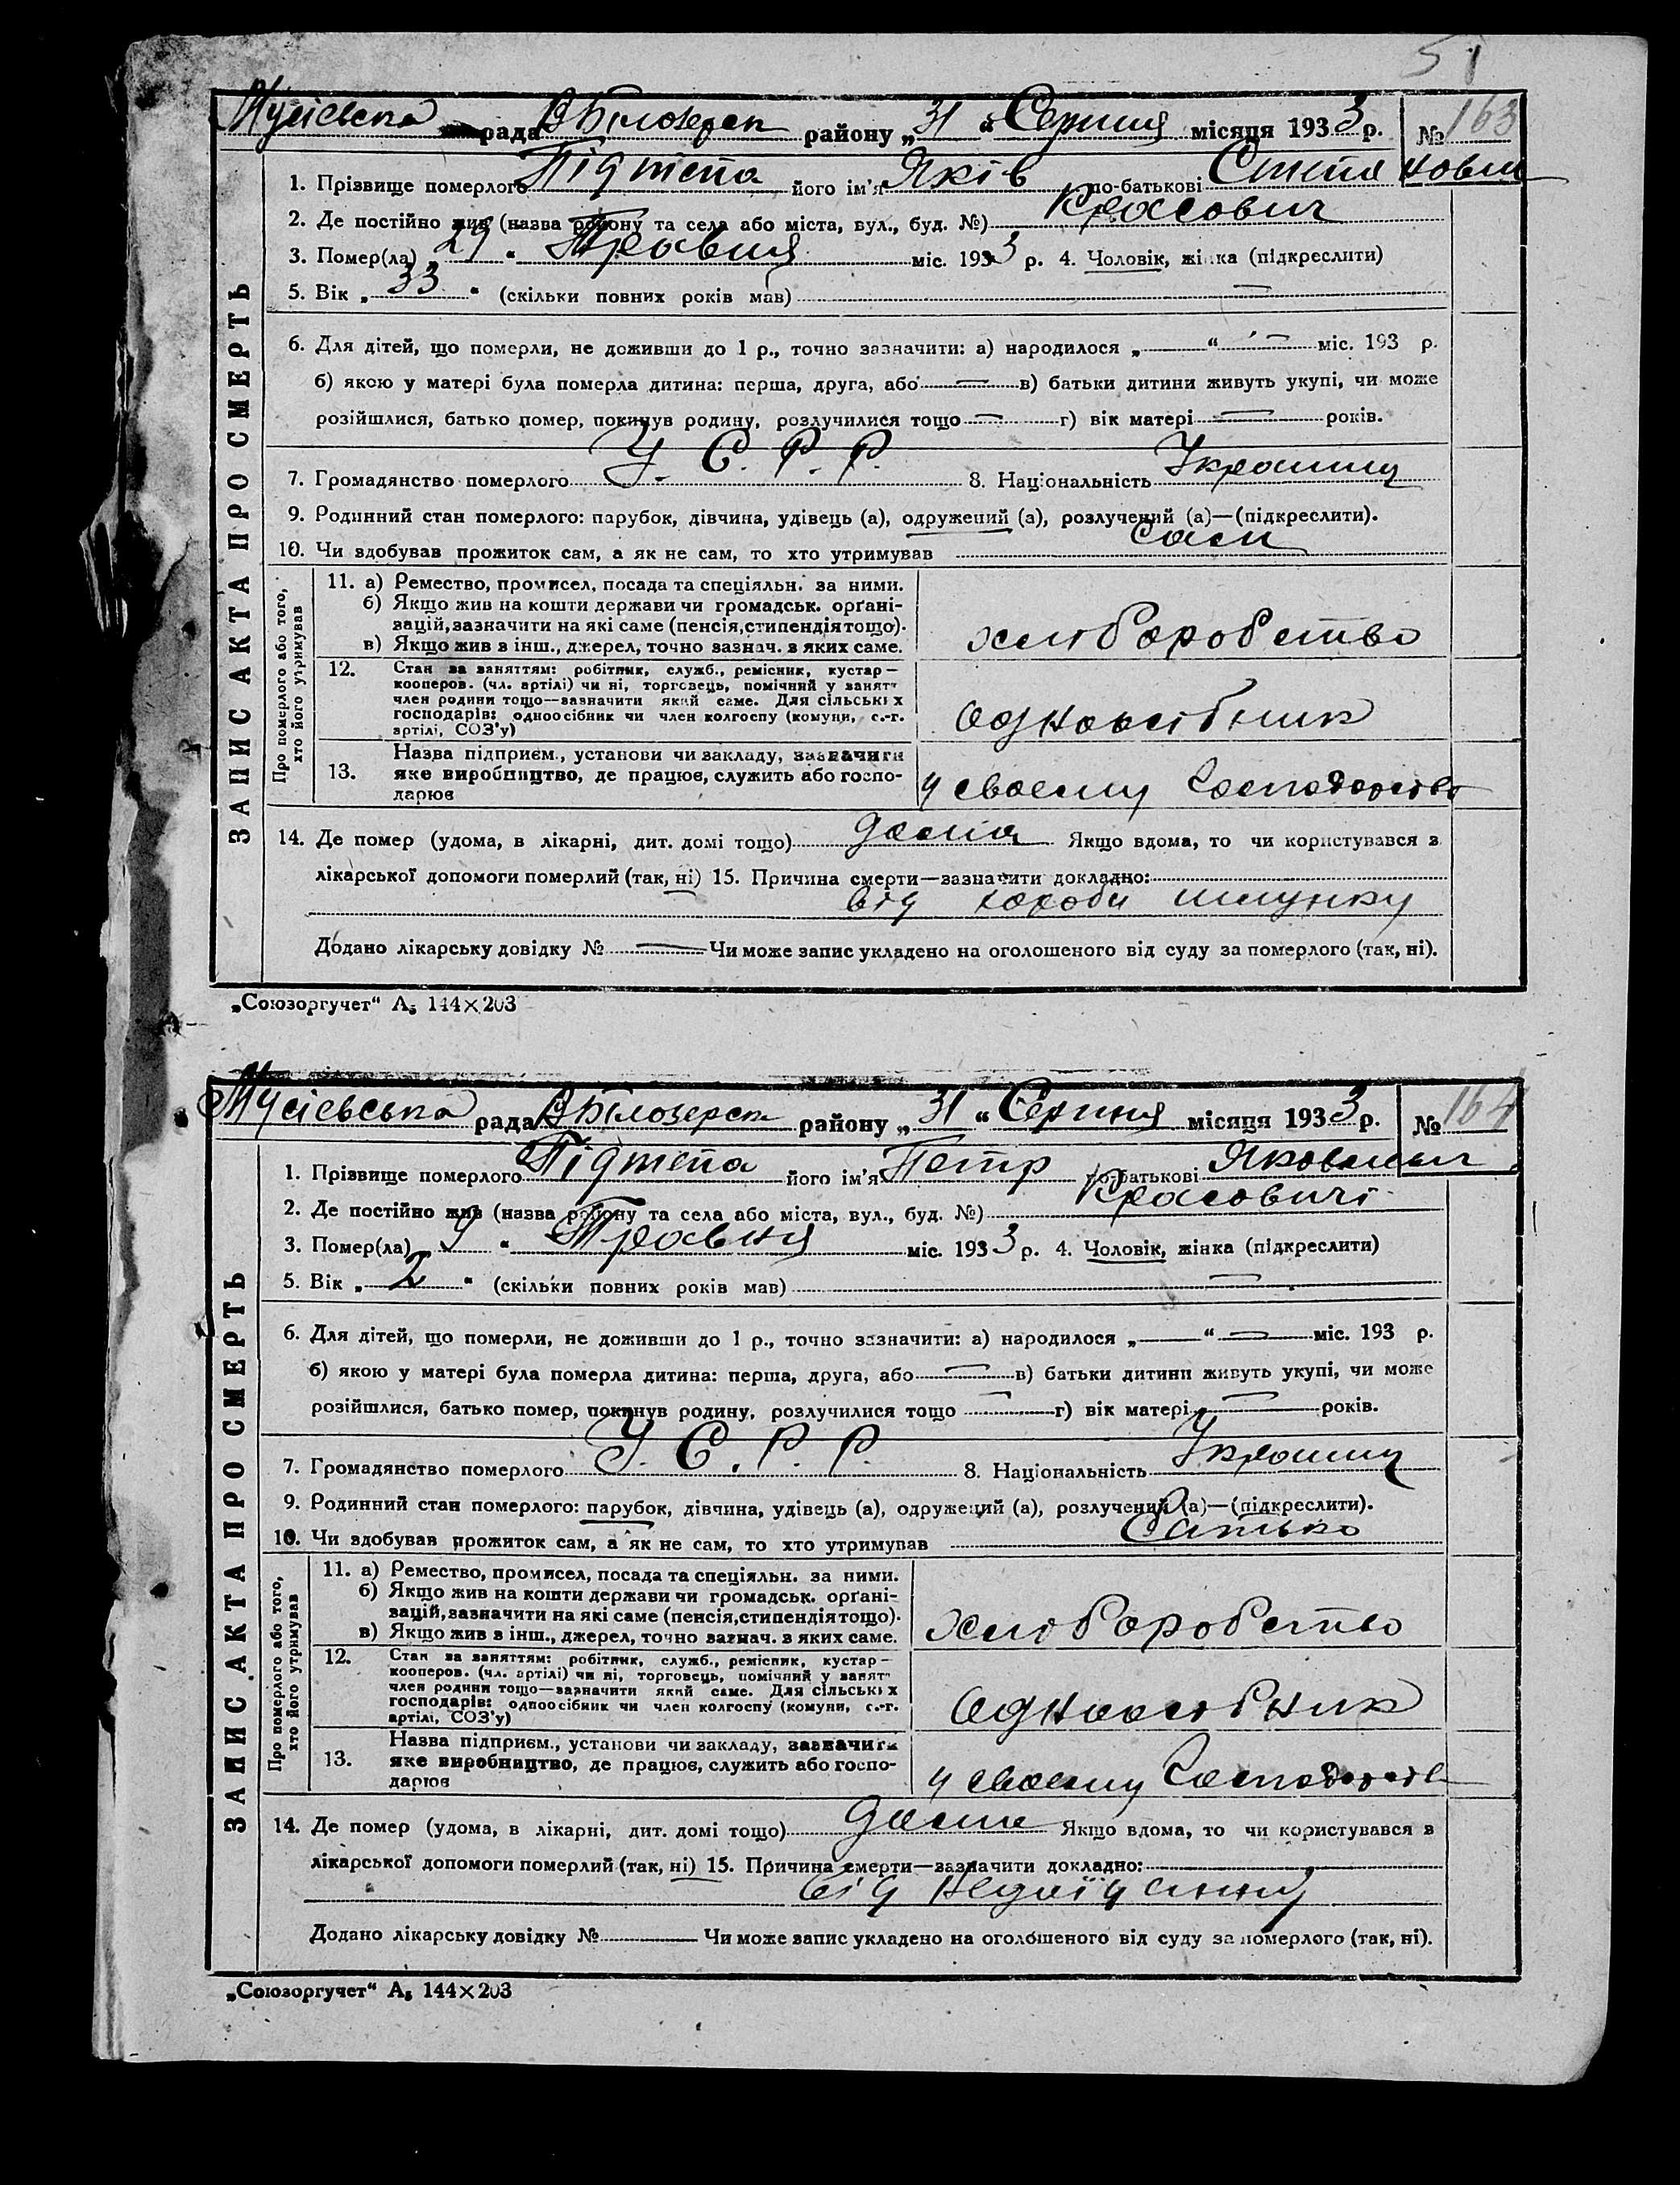 51
Мусіевська рада В Білозерск району „31“ Серпня місяця 1933 р. № 163
1. Прізвище померлого Підтепа його ім'я Яків по-батькові Степанович
2. Де постійно жив (назва району та села або міста, вул., буд. №) Красович
3. Помер(ла) „29“ Травня міс. 1933 р. 4. Чоловік, жінка (підкреслити)
5. Вік „33“ (скільки повних років мав) —
6. Для дітей, що померли, не доживши до 1 р., точно зазначити: а) народилося „ “ — міс. 193 р.
б) якою у матері була померла дитина: перша, друга, або — в) батьки дитини живуть укупі, чи може
розійшлися, батько помер, покинув родину, розлучилися тощо — г) вік матері — років.
7. Громадянство померлого У. С. Р. Р. 8. Національність Українц
9. Родинний стан померлого: парубок, дівчина, удівець (а), одружений (а), розлучений (а)—(підкреслити).
10. Чи здобував прожиток сам, а як не сам, то хто утримував сам
ЗАПИС АКТА ПРО СМЕРТЬ
Про померлого або того, хто його утримував
11. а) Ремество, промисел, посада та спеціяльн. за ними.
б) Якщо жив на кошти держави чи громадськ. орґані-
зацій, зазначити на які саме (пенсія, стипендія тощо).
в) Якщо жив з інш., джерел, точно зазнач. з яких саме.
хліборобство
12. Стан за заняттям: робітник, служб., ремісник, кустар—
кооперов. (чл. артілі) чи ні, торговець, помічний у занятт
член родини тощо—зазначити який саме. Для сільських
господарів: одноосібник чи член колгоспу (комуни, с.-г.
артілі, СОЗ'у)
одноосібник
13. Назва підприєм., установи чи закладу, зазначити
яке виробництво, де працює, служить або госпо-
дарює
у своєму господарстві
14. Де помер (удома, в лікарні, дит. домі тощо) дома Якщо вдома, то чи користувався з
лікарської допомоги померлий (так, ні) 15. Причина смерти—зазначити докладно:
від хороби шлунку
Додано лікарську довідку № — Чи може запис укладено на оголошеного від суду за померлого (так, ні).
„Союзоргучет“ А5 144×203
Мусіевська рада В Білозерск району „31“ Серпня місяця 1933 р. № 164
1. Прізвище померлого Підтепа його ім'я Петр по-батькові Якович
2. Де постійно жив (назва району та села або міста, вул., буд. №) Красовичі
3. Помер(ла) „9“ Травня міс. 1933 р. 4. Чоловік, жінка (підкреслити)
5. Вік „2“ (скільки повних років мав) —
6. Для дітей, що померли, не доживши до 1 р., точно зазначити: а) народилося „—“ — міс. 193 р.
б) якою у матері була померла дитина: перша, друга, або — в) батьки дитини живуть укупі, чи може
розійшлися, батько помер, покинув родину, розлучилися тощо — г) вік матері — років.
7. Громадянство померлого У. С. Р. Р. 8. Національність Українц
9. Родинний стан померлого: парубок, дівчина, удівець (а), одружений (а), розлучений (а)—(підкреслити).
10. Чи здобував прожиток сам, а як не сам, то хто утримував батько
ЗАПИС АКТА ПРО СМЕРТЬ
Про померлого або того, хто його утримував
11. а) Ремество, промисел, посада та спеціяльн. за ними.
б) Якщо жив на кошти держави чи громадськ. орґані-
зацій, зазначити на які саме (пенсія, стипендія тощо).
в) Якщо жив з інш., джерел, точно зазнач. з яких саме.
хліборобство
12. Стан за заняттям: робітник, служб., ремісник, кустар—
кооперов. (чл. артілі) чи ні, торговець, помічний у занятт
член родини тощо—зазначити який саме. Для сільських
господарів: одноосібник чи член колгоспу (комуни, с.-г.
артілі, СОЗ'у)
одноосібник
13. Назва підприєм., установи чи закладу, зазначити
яке виробництво, де працює, служить або госпо-
дарює
у своєму господарстві
14. Де помер (удома, в лікарні, дит. домі тощо) дома Якщо вдома, то чи користувався з
лікарської допомоги померлий (так, ні) 15. Причина смерти—зазначити докладно:
від недоїдання
Додано лікарську довідку № — Чи може запис укладено на оголошеного від суду за померлого (так, ні).
„Союзоргучет“ А5 144×203